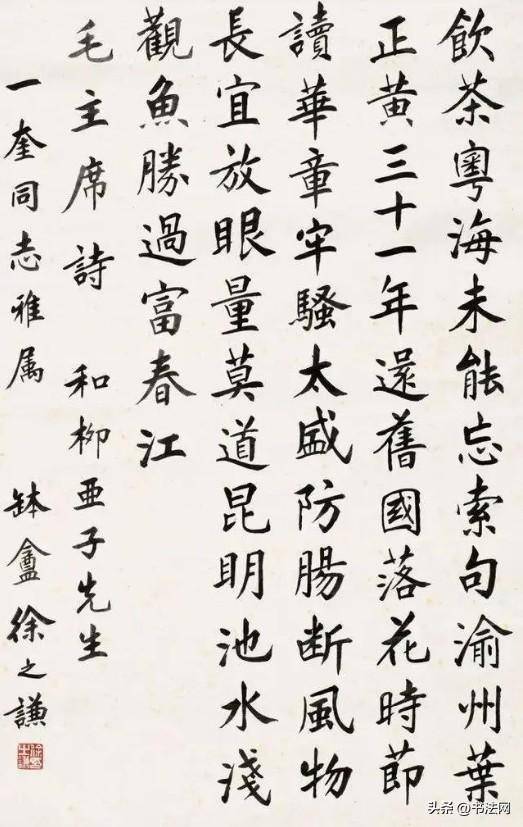 飲茶粵海未能忘索句渝州葉
正黃三十一年還舊國落花時節
讀華章牢騷太盛防腸断風物
長宜放眼量莫道昆明池水淺
觀魚勝過富春江
毛主席詩 和柳亞子先生
一奎同志雅属 缽盦徐之謙
头条 @书法网